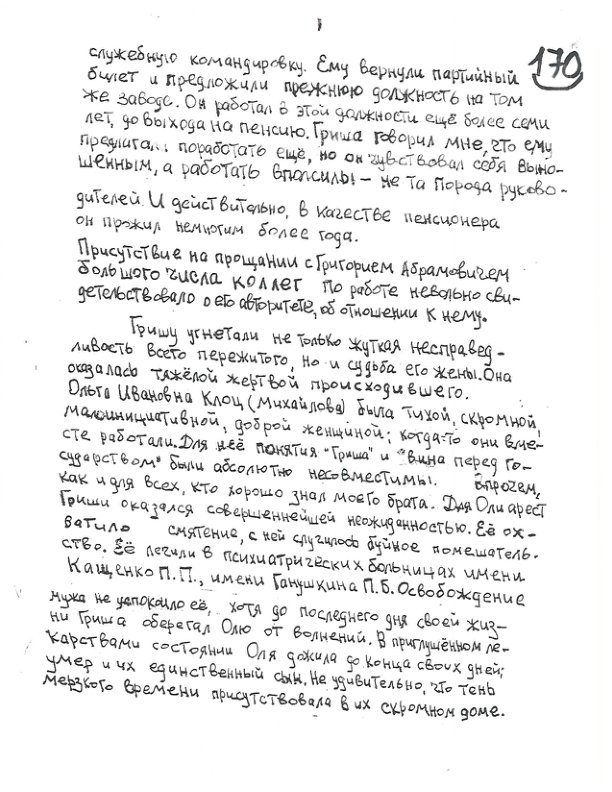 170
служебную командировку. Ему вернули партийный
билет и предложили прежнюю должность на том
же заводе. Он работал в этой должности ещё более семи
лет, до выхода на пенсию. Гриша говорил мне, что ему
предлагали поработать ещё, но он чувствовал себя выно-
шенным, а работать вполсилы – не та порода руково-
дителей. И действительно, в качестве пенсионера
он прожил немногим более года.
Присутствие на прощании с Григорием Абрамовичем
большого числа коллег по работе невольно сви-
детельствовало о его авторитете, об отношении к нему.
Гришу угнетали не только жуткая несправед-
ливость всего пережитого, но и судьба его жены. Она
оказалась тяжёлой жертвой происходившего.
Ольга Ивановна Клоц (Михайлова) была тихой, скромной,
малоинициативной, доброй женщиной; когда-то они вме-
сте работали. Для неё понятия "Гриша" и "вина перед го-
сударством" были абсолютно несовместимы. Впрочем,
как и для всех, кто хорошо знал моего брата. Для Оли арест
Гриши оказался совершеннейшей неожиданностью. Её ох-
ватило смятение, с ней случилось буйное помешатель-
ство. Её лечили в психиатрических больницах имени
Кащенко П.П., имени Ганушкина П.Б. Освобождение
мужа не успокоило её, хотя до последнего дня своей жиз-
ни Гриша оберегал Олю от волнений. В приглушённом ле-
карствами состоянии Оля дожила до конца своих дней;
умер и их единственный сын. Не удивительно, что тень
мерзкого времени присутствовала в их скромном доме.